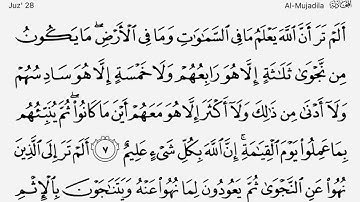 Juz' 28
Al-Mujadila
أَلَمْ تَرَ أَنَّ ٱللَّهَ يَعْلَمُ مَا فِى ٱلسَّمَـٰوَٰتِ وَمَا فِى ٱلْأَرْضِ ۖ مَا يَكُونُ
مِن نَّجْوَىٰ ثَلَـٰثَةٍ إِلَّا هُوَ رَابِعُهُمْ وَلَا خَمْسَةٍ إِلَّا هُوَ سَادِسُهُمْ
وَلَآ أَدْنَىٰ مِن ذَٰلِكَ وَلَآ أَكْثَرَ إِلَّا هُوَ مَعَهُمْ أَيْنَ مَا كَانُوا۟ ۖ ثُمَّ يُنَبِّئُهُم
بِمَا عَمِلُوا۟ يَوْمَ ٱلْقِيَـٰمَةِ ۚ إِنَّ ٱللَّهَ بِكُلِّ شَىْءٍ عَلِيمٌ ٧ أَلَمْ تَرَ إِلَى ٱلَّذِينَ
نُهُوا۟ عَنِ ٱلنَّجْوَىٰ ثُمَّ يَعُودُونَ لِمَا نُهُوا۟ عَنْهُ وَيَتَنَـٰجَوْنَ بِٱلْإِثْمِ